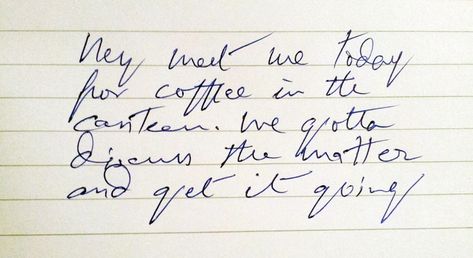 Hey meet me today
for coffee in the
canteen. We gotta
discuss the matter
and get it going